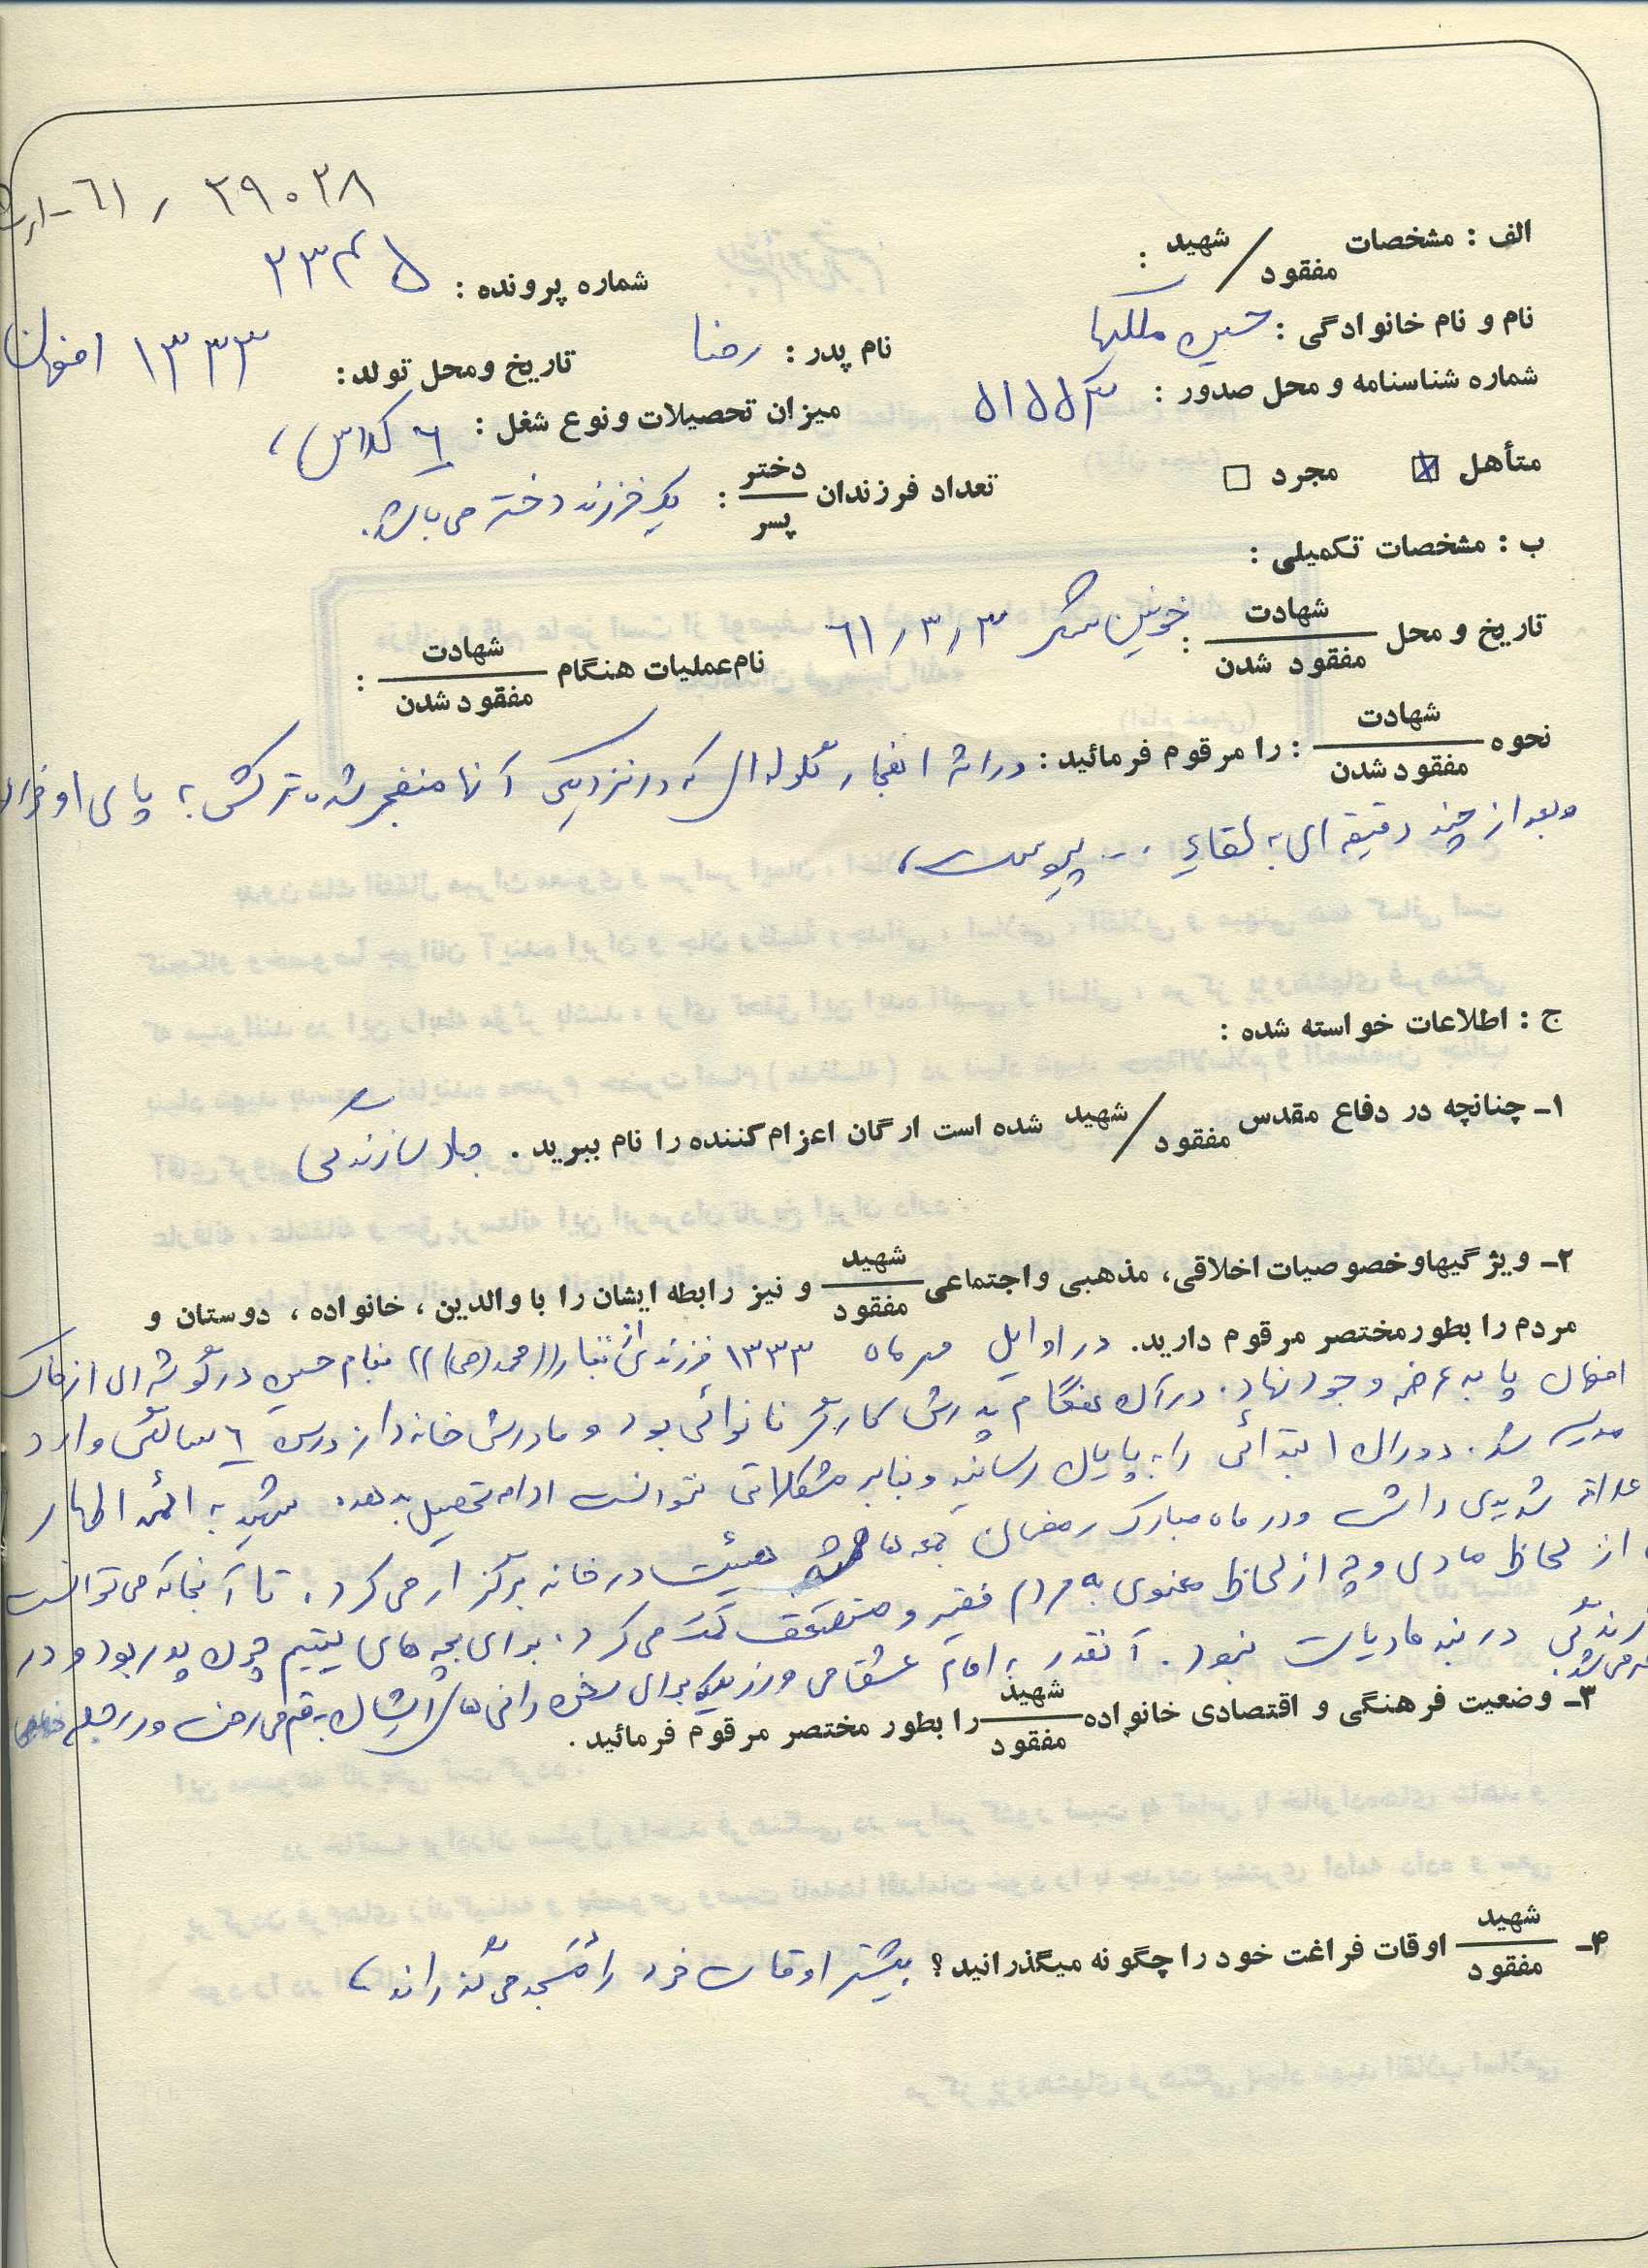 ۲۹۰۲۸ / ۶۱-
الف : مشخصات شهید / مفقود :
شماره پرونده : ۲۳۴۵
نام و نام خانوادگی : حسین ملکیها نام پدر : رضا تاریخ ومحل تولد: ۱۳۳۳ اصفهان
شماره شناسنامه و محل صدور : ۵۱۵۵۳ میزان تحصیلات ونوع شغل : ۶ کلاس
متأهل ☒ مجرد ☐ تعداد فرزندان دختر / پسر : یک فرزند دختر می باشد.
ب : مشخصات تکمیلی :
تاریخ و محل شهادت / مفقود شدن : خونین شهر ۶۱/۳/۳ نام عملیات هنگام شهادت / مفقود شدن :
نحوه شهادت / مفقود شدن : را مرقوم فرمائید : در اثر انفجار گلوله ای که در نزدیکی آنها منفجر شده ترکش به پای او
وبعد از چند دقیقه ای به لقاءِ ... پیوست
ج : اطلاعات خواسته شده :
۱- چنانچه در دفاع مقدس شهید / مفقود شده است ارگان اعزام کننده را نام ببرید . جهاد سازندگی
۲- ویژگیهاوخصوصیات اخلاقی، مذهبی واجتماعی شهید / مفقود و نیز رابطه ایشان را با والدین ، خانواده ، دوستان و
مردم را بطورمختصر مرقوم دارید. در اوایل مهر ماه ۱۳۳۳ فرزندی از تبار ((محمد(ص))) بنام حسین در گوشه ای از خاک
اصفهان پا به عرضه وجود نهاد. در آن هنگام پدرش کارگر نانوائی بود و مادرش خانه دار در سن ۶ سالگی وارد
مدرسه شد. دوران ابتدائی را به پایان رسانید و بنابر مشکلاتی نتوانست ادامه تحصیل بدهد. شهید به ائمه اطهار
علاقه شدیدی داشت و در ماه مبارک رمضان جمعه ها هیئت در خانه برگزار می کرد. تا آنجا که می توانست
از لحاظ مادی و چه از لحاظ معنوی به مردم فقیر و مستضعف کمک می کرد. برای بچه های یتیم چون پدر بود و در
زندگی در بند مادیات نبود. آنقدر به امام عشق می ورزید که برای سخن رانی های ایشان به قم می رفت و در
۳- وضعیت فرهنگی و اقتصادی خانواده شهید / مفقود را بطور مختصر مرقوم فرمائید .
۴- شهید / مفقود اوقات فراغت خود را چگونه میگذرانید ؟ بیشتر اوقات خود را مسجد می گذراند